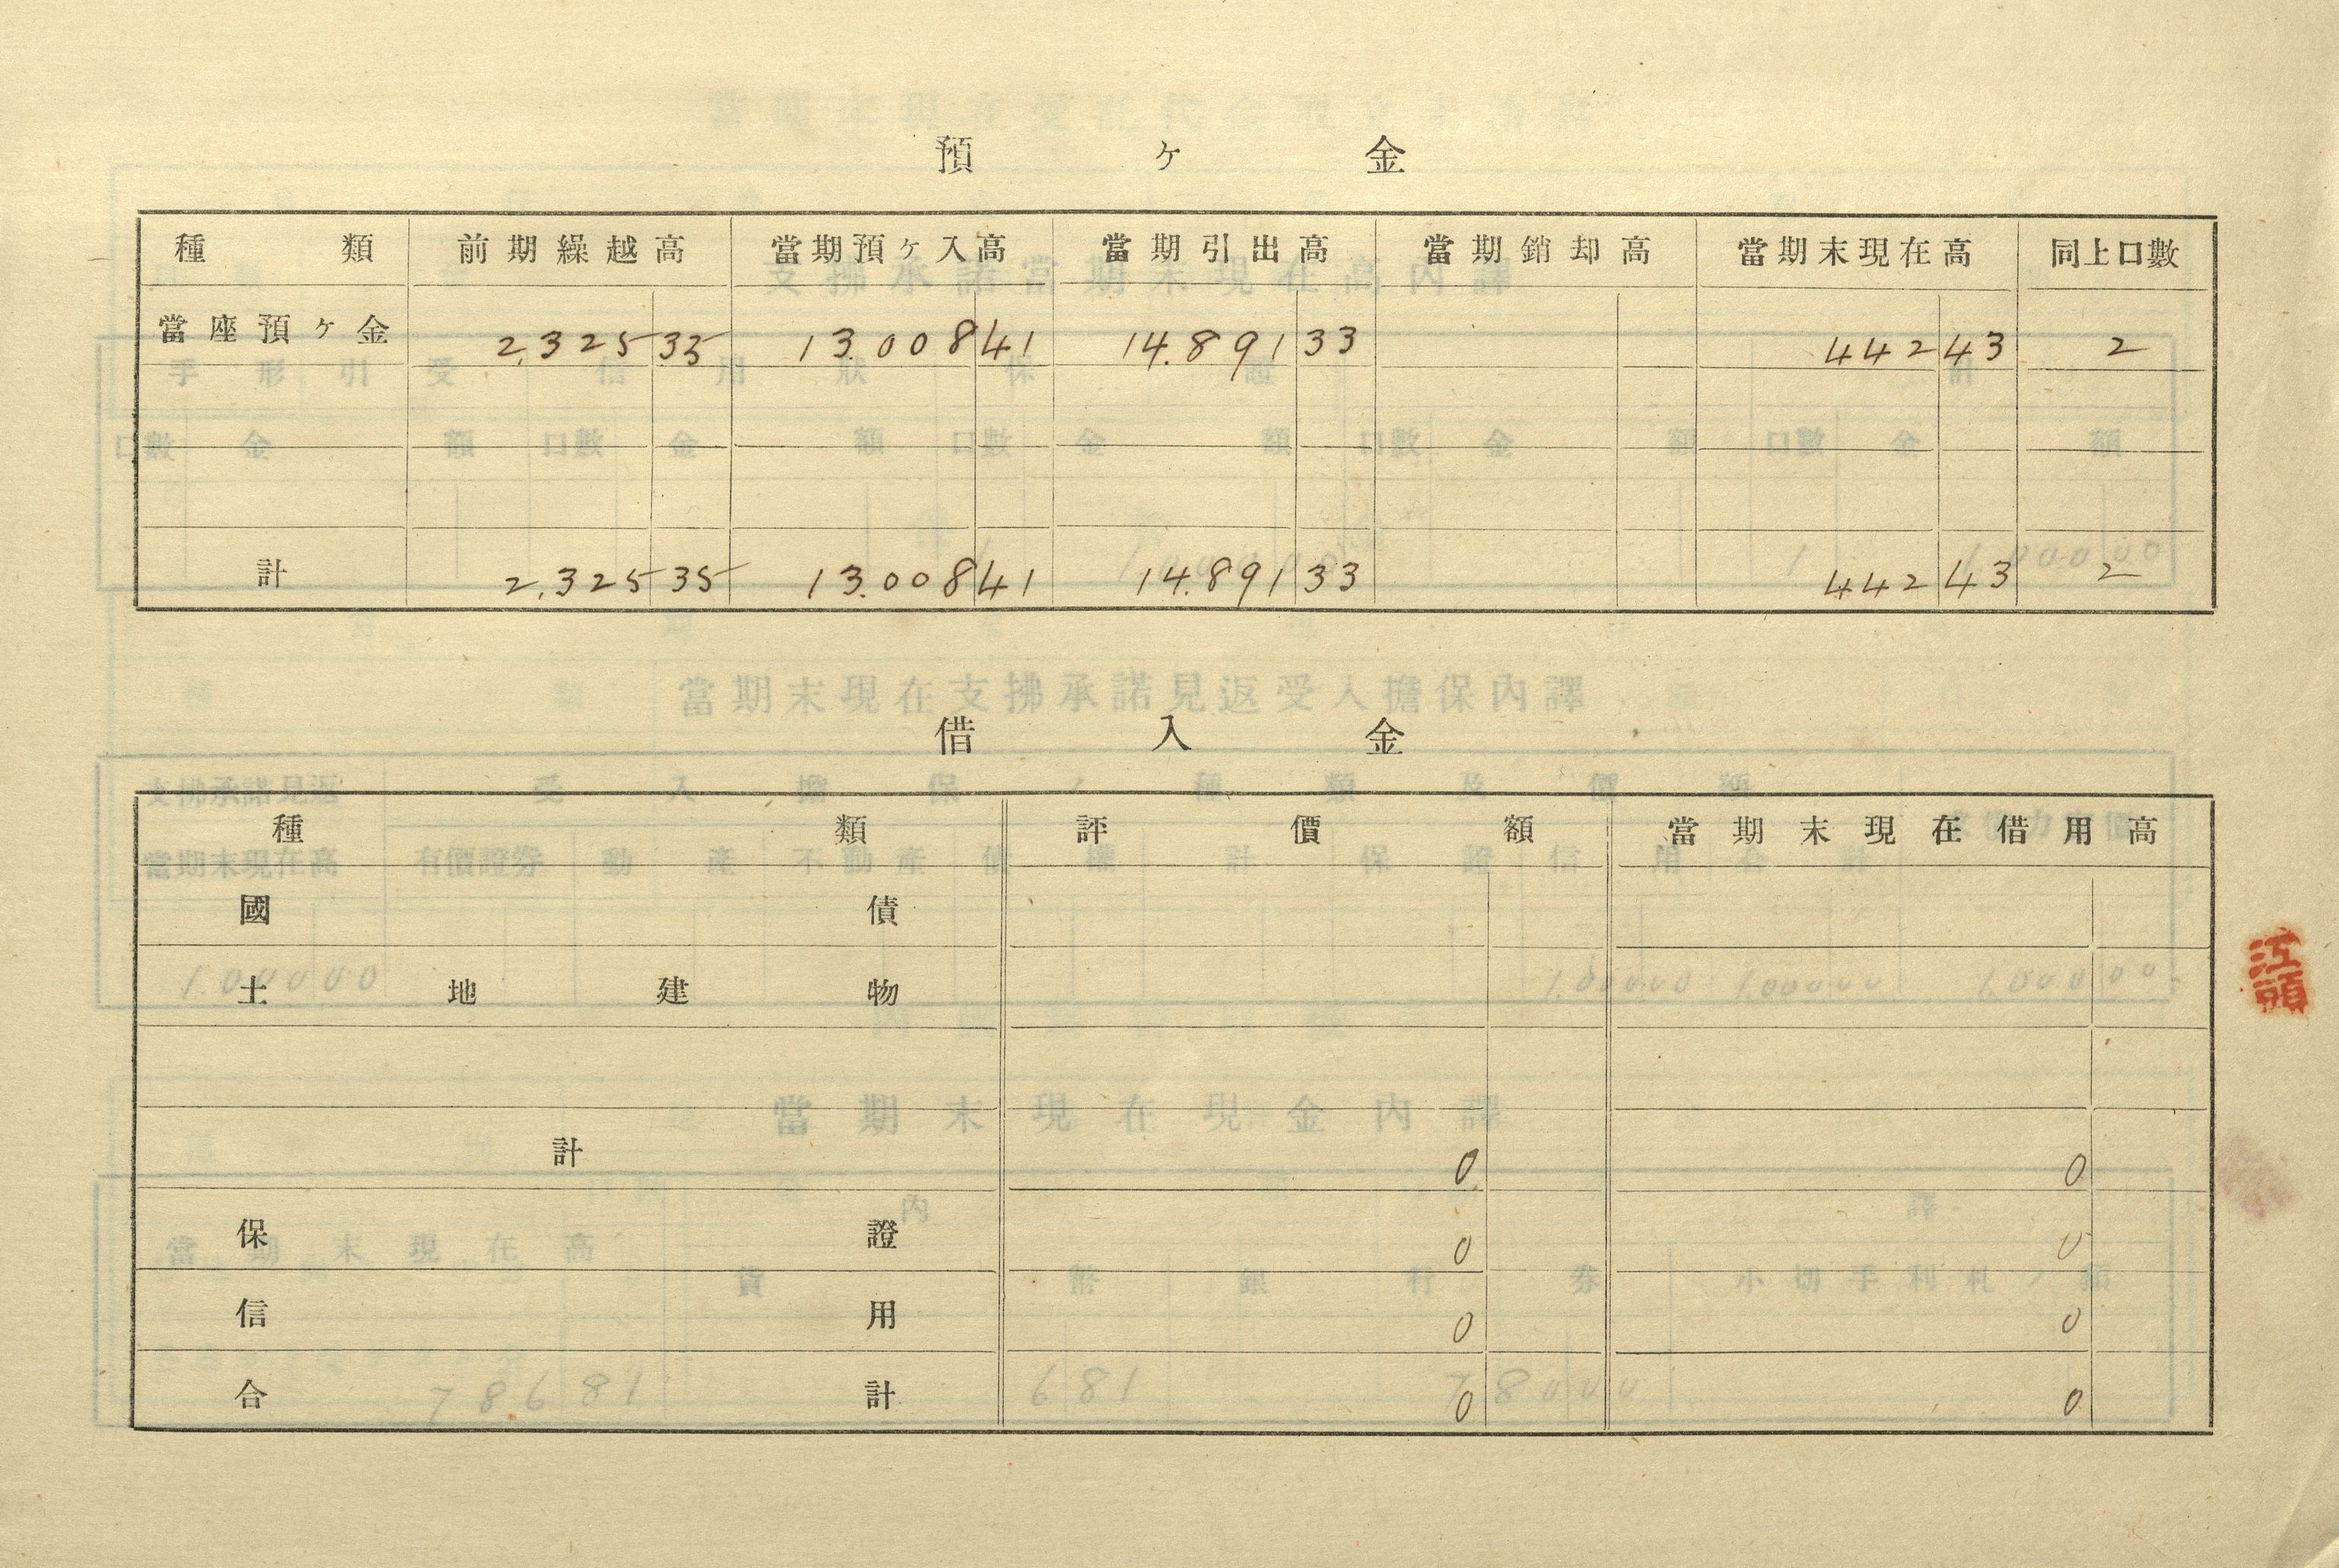 預ヶ金
種類 前期繰越高 當期預ヶ入高 當期引出高 當期銷却高 當期末現在高 同上口數
當座預ヶ金 2,325 35 13.008 41 14.891 33 442 43 2
計 2,325 35 13.008 41 14.891 33 442 43 2
借入金
種類 評價額 當期末現在借用高
國債
土地建物
計 0 0
保證 0 0
信用 0 0
合計 0 0
江頭